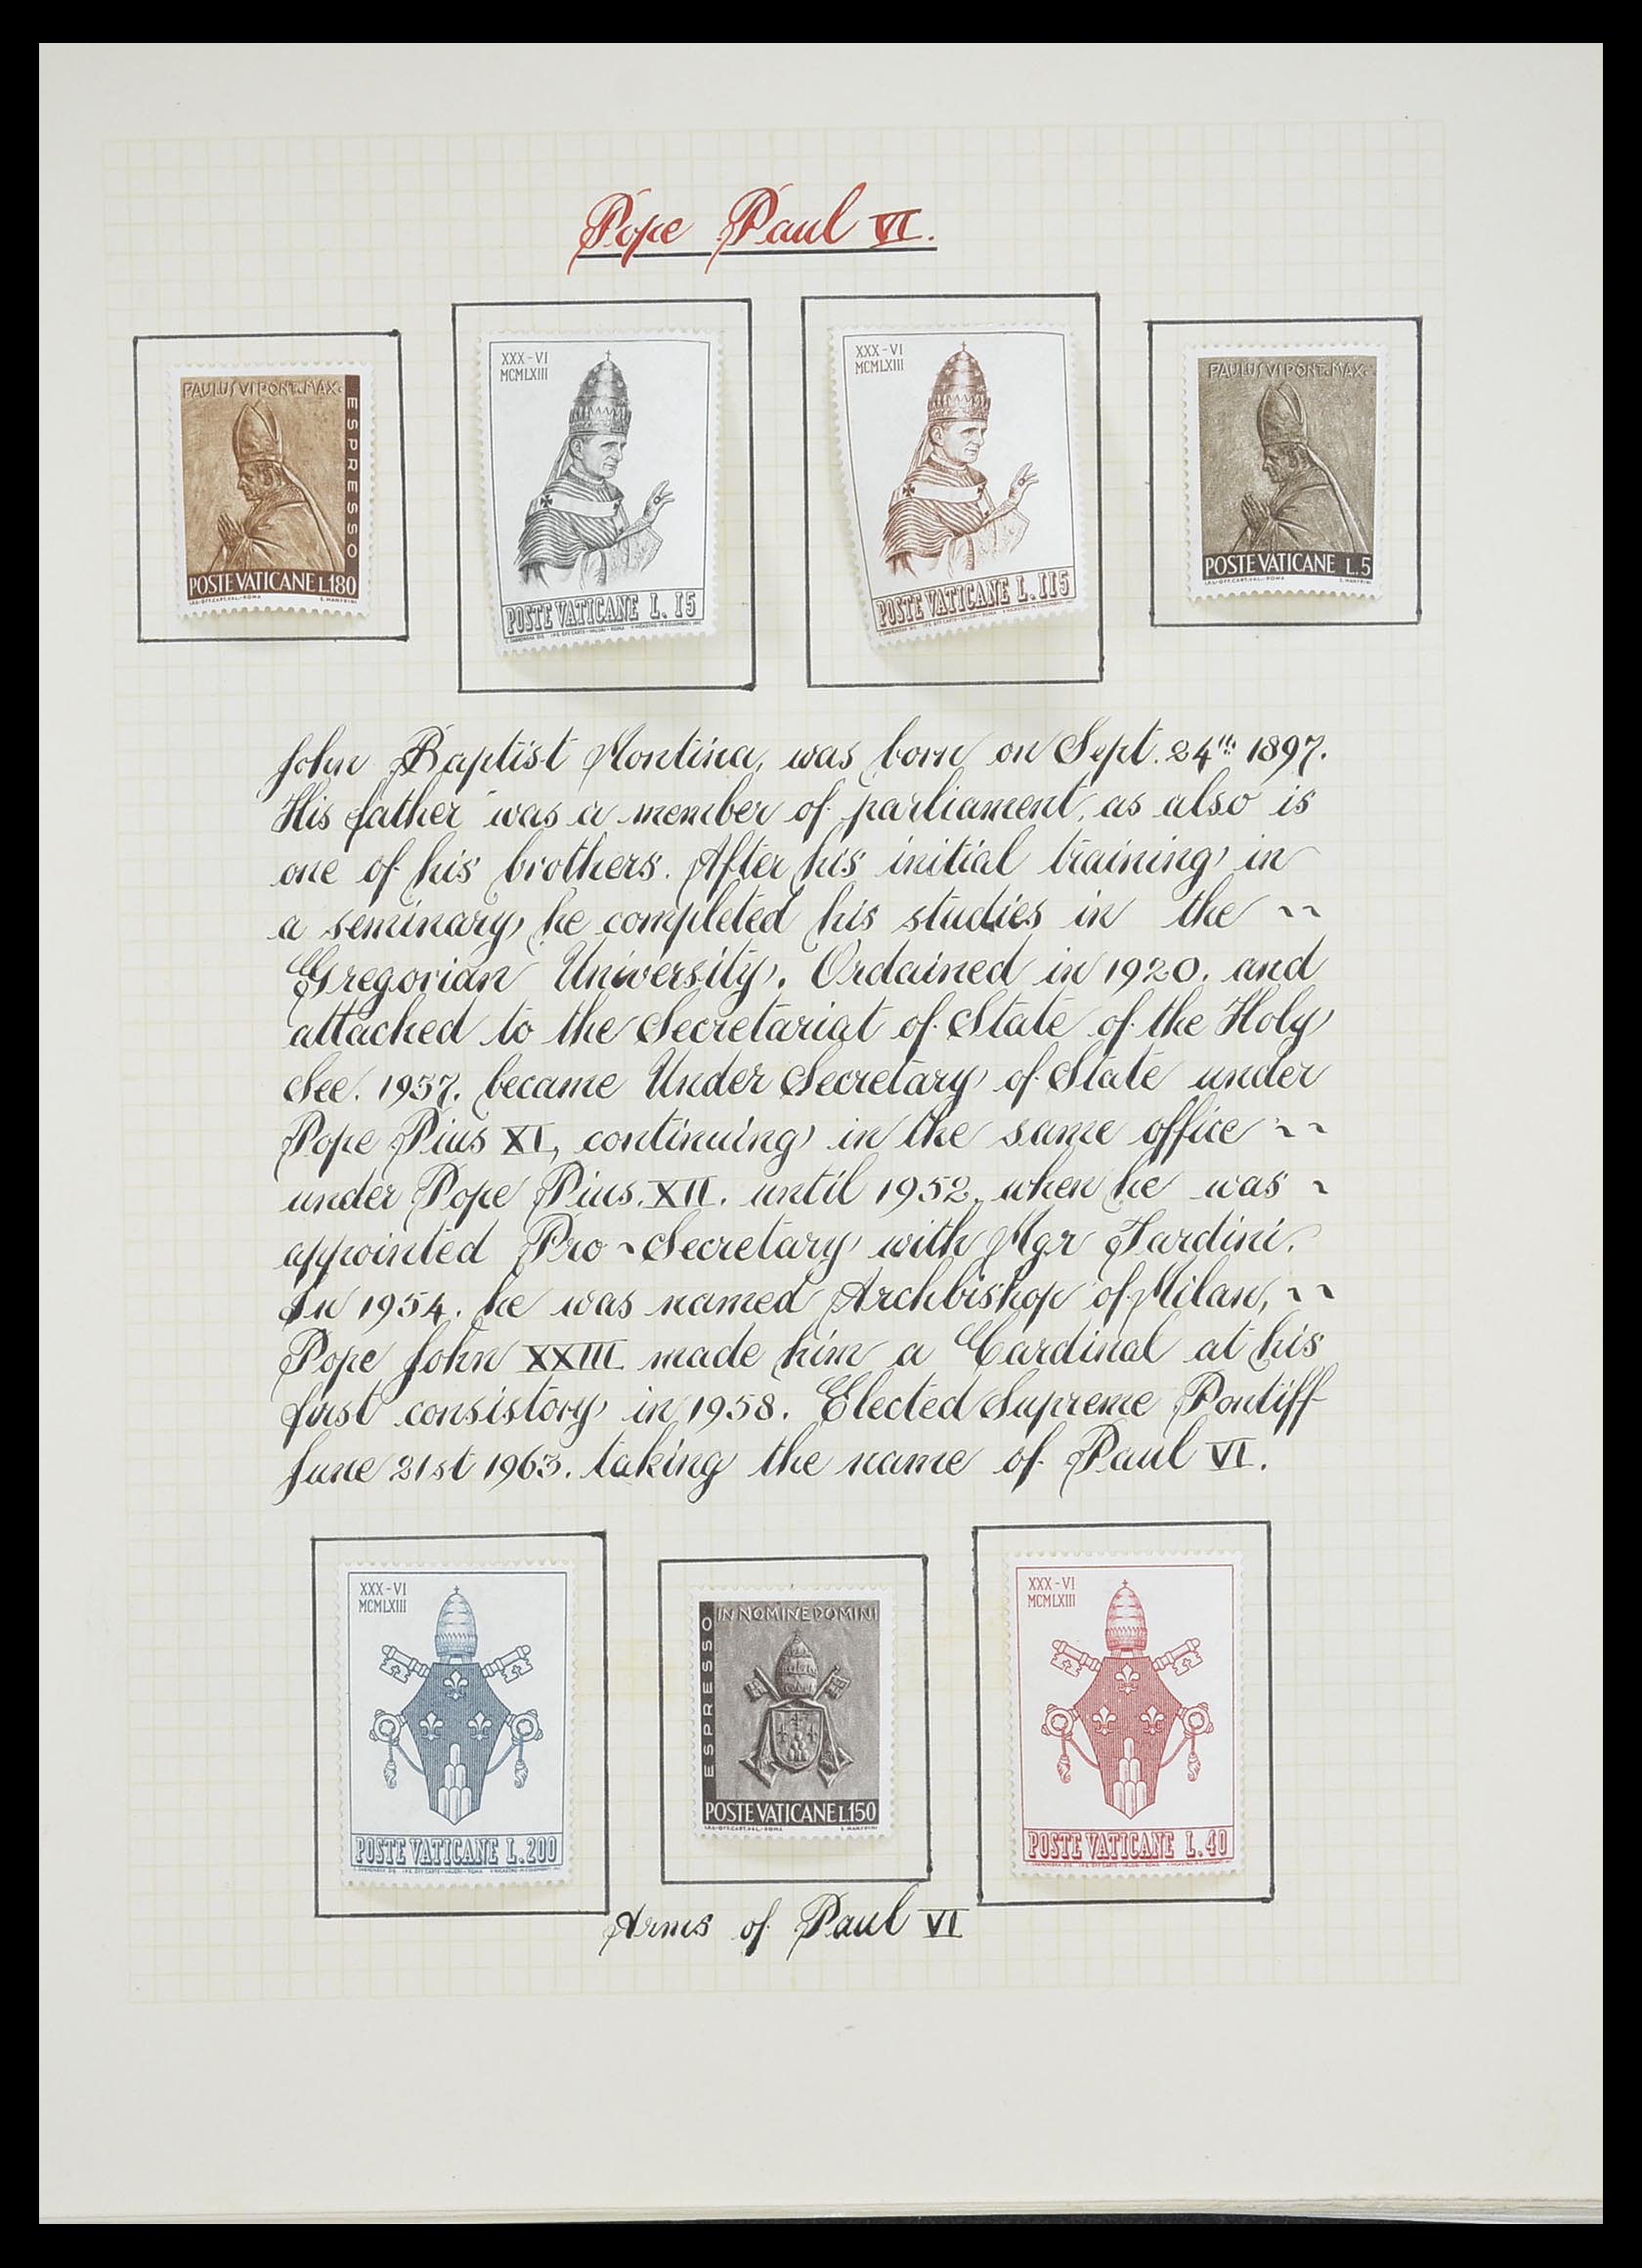 Pope Paul VI.
PAULUS VI PONT. MAX.
ESPRESSO
POSTE VATICANE L.180
XXX-VI
MCMLXIII
POSTE VATICANE L. 15
XXX-VI
MCMLXIII
POSTE VATICANE L. 115
PAULUS VI PONT. MAX.
POSTE VATICANE L.5
John Baptist Montina, was born on Sept. 24th 1897.
His father was a member of parliament, as also is
one of his brothers. After his initial training in
a seminary he completed his studies in the ~~
Gregorian University. Ordained in 1920. and
attached to the Secretariat of State of the Holy
See. 1937. became Under Secretary of State under
Pope Pius XI, continuing in the same office ~~
under Pope Pius. XII. until 1952, when he was ~
appointed Pro-Secretary with Mgr Tardini.
In 1954. he was named Archbishop of Milan, ~~
Pope John XXIII made him a Cardinal at his
first consistory in 1958. Elected Supreme Pontiff
June 21st 1963. taking the name of Paul VI.
XXX-VI
MCMLXIII
POSTE VATICANE L.200
IN NOMINE DOMINI
ESPRESSO
POSTE VATICANE L.150
XXX-VI
MCMLXIII
POSTE VATICANE L.40
Arms of Paul VI